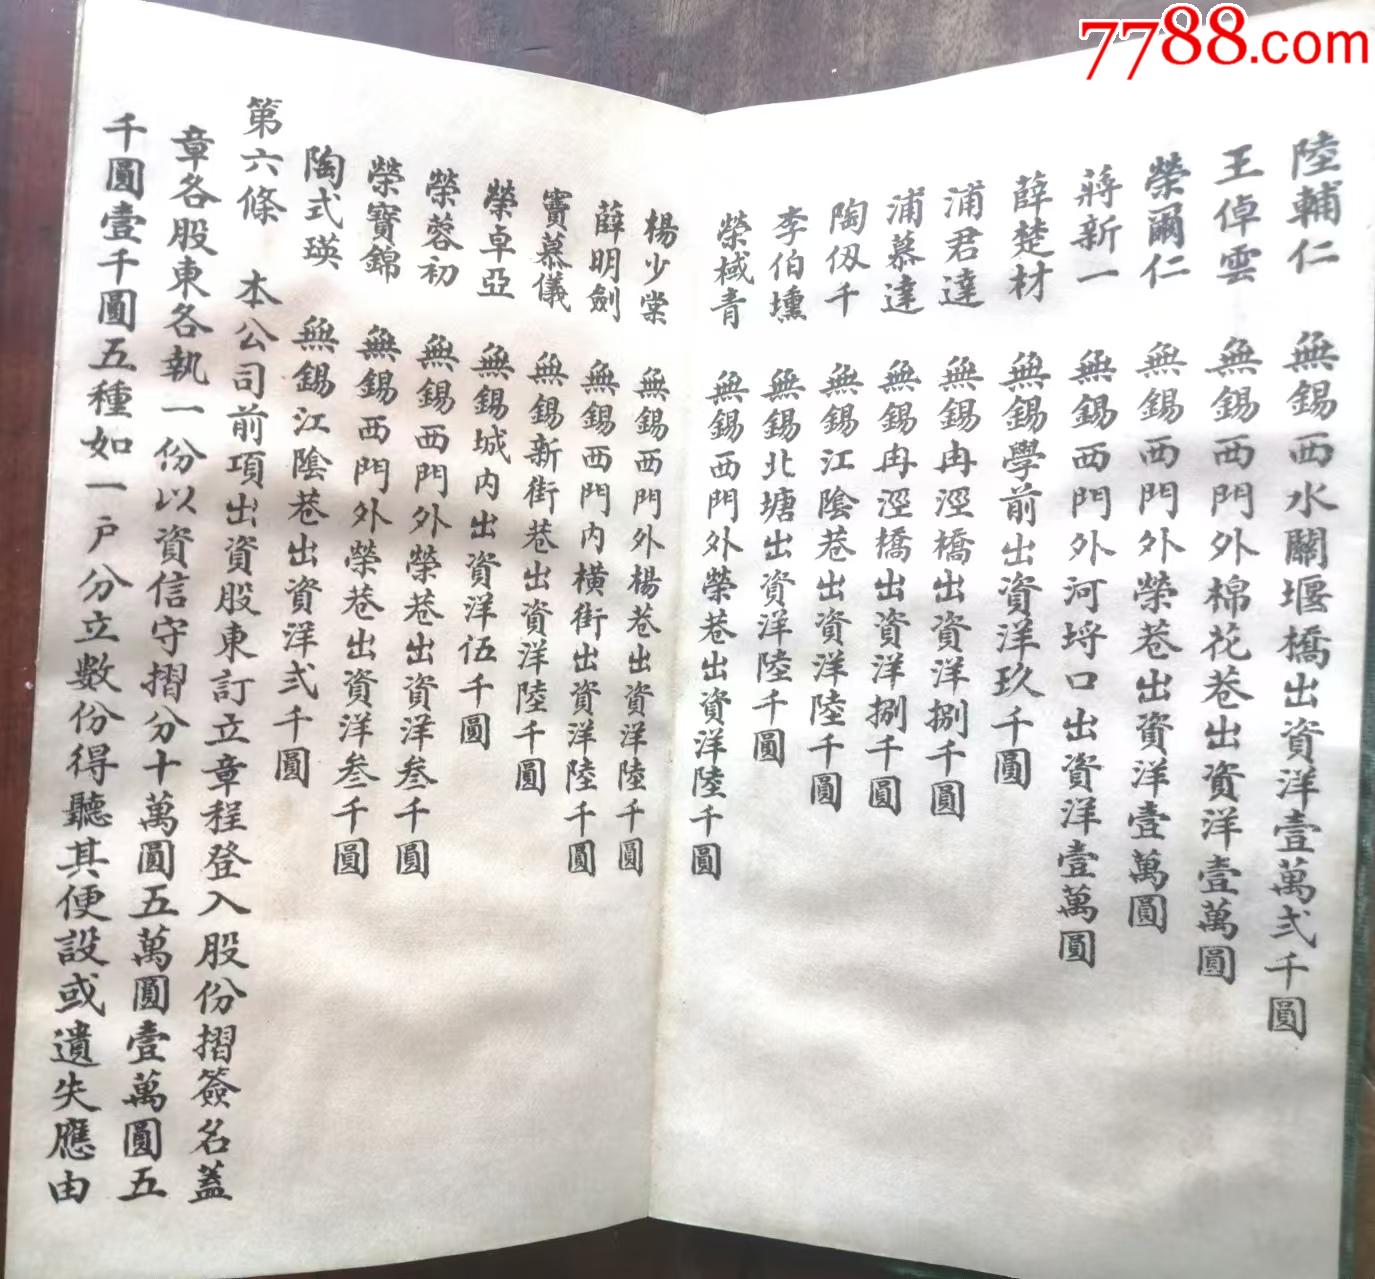 7788.com
陸輔仁 無錫西水關堰橋出資洋壹萬弍千圓
王倬雲 無錫西門外棉花巷出資洋壹萬圓
榮爾仁 無錫西門外榮巷出資洋壹萬圓
蔣新一 無錫西門外河埒口出資洋壹萬圓
薛楚材 無錫學前出資洋玖千圓
浦君達 無錫冉涇橋出資洋捌千圓
浦慕達 無錫冉涇橋出資洋捌千圓
陶伋千 無錫江陰巷出資洋陸千圓
李伯壎 無錫北塘出資洋陸千圓
榮棫青 無錫西門外榮巷出資洋陸千圓
楊少棠 無錫西門外楊巷出資洋陸千圓
薛明劍 無錫西門內橫街出資洋陸千圓
竇慕儀 無錫新街巷出資洋陸千圓
榮卓亞 無錫城內出資洋伍千圓
榮蓉初 無錫西門外榮巷出資洋叁千圓
榮寶錦 無錫西門外榮巷出資洋叁千圓
陶式瑛 無錫江陰巷出資洋弍千圓
第六條 本公司前項出資股東訂立章程登入股份摺簽名蓋
章各股東各執一份以資信守摺分十萬圓五萬圓壹萬圓五
千圓壹千圓五種如一戶分立數份得聽其便設或遺失應由